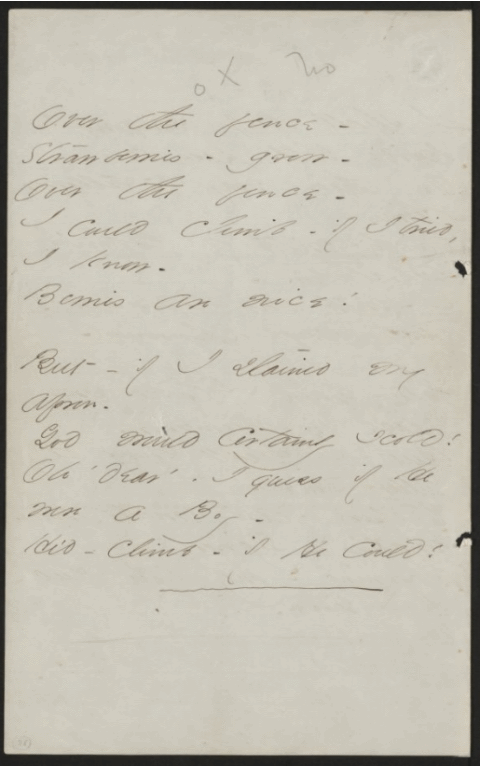 o X no
Over the fence -
Strawberries - grow -
Over the fence -
I could climb - if I tried,
I know -
Berries are nice!
But - if I stained my
Apron -
God would certainly scold!
Oh 'dear' - I guess if He
were a Boy -
He'd - climb - if He could!